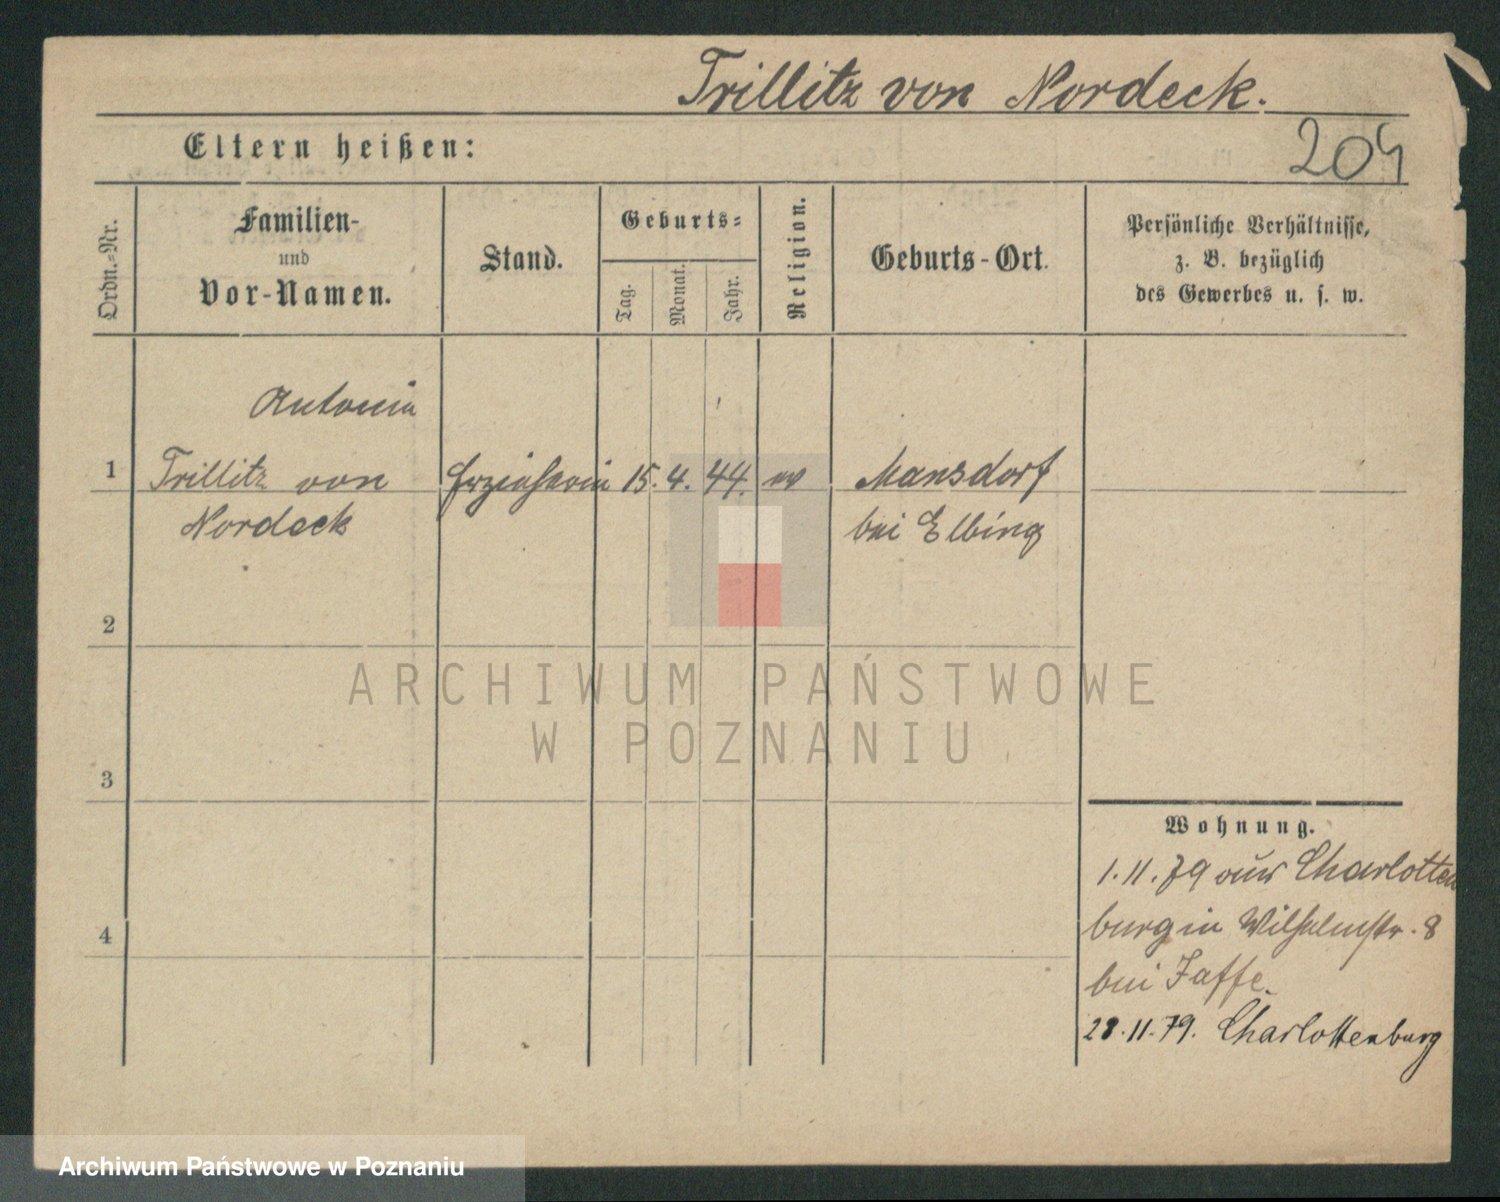 Trillitz von Nordeck.
Eltern heißen:
204
Ordn.-Nr.
Familien-
und
Vor-Namen.
Stand.
Geburts-
Tag.
Monat.
Jahr.
Religion.
Geburts-Ort.
Persönliche Verhältnisse,
z. B. bezüglich
des Gewerbes u. s. w.
Antonia
1 Trillitz von Erzieherin 15. 4. 44. ev Mansdorf
Nordeck bei Elbing
2
3
4
Wohnung.
1.11.79 aus Charlotten
burg in Wilhelmstr. 8
bei Jaffe.
28.11.79. Charlottenburg
ARCHIWUM PAŃSTWOWE
W POZNANIU
Archiwum Państwowe w Poznaniu